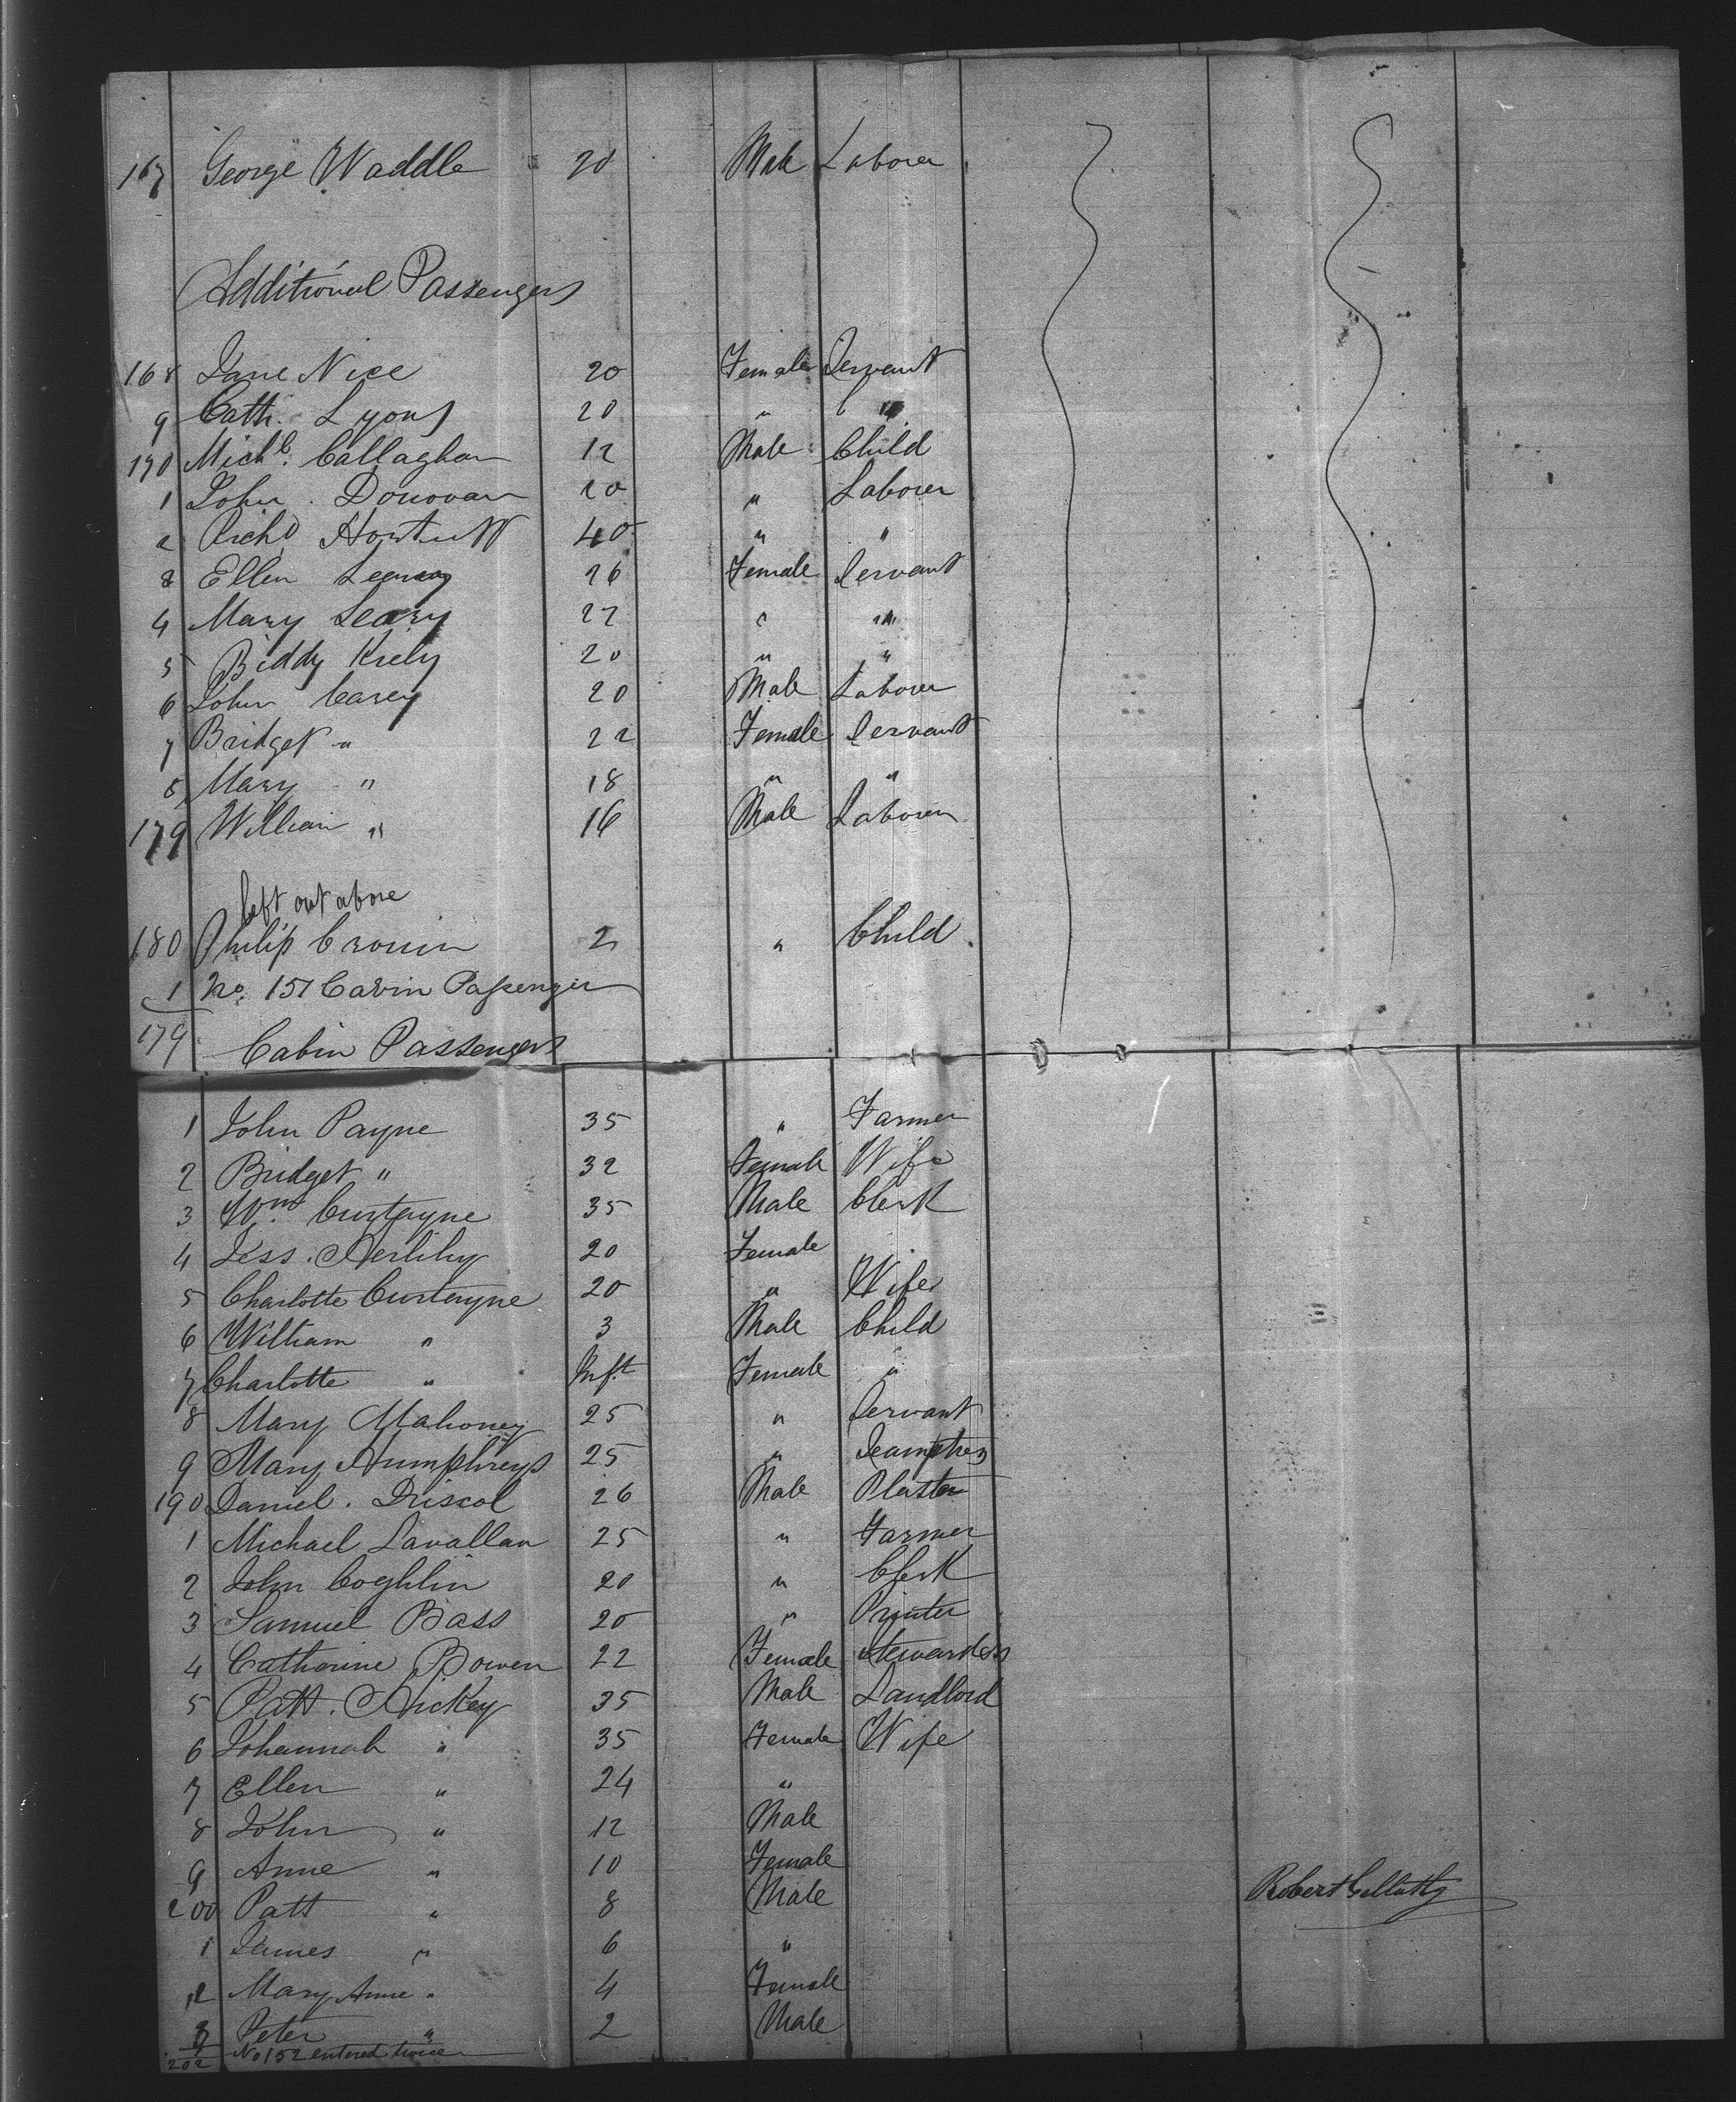 167 George Waddle 20 Male Laborer
Additional Passengers
168 Jane Nice 20 Female Servant
9 Cath. Lyons 20 " "
170 Michl. Callaghan 12 Male Child
1 John Donovan 20 " Laborer
2 Richd 40 " "
3 Ellen 26 Female Servant
4 Mary Leary 22 " "
5 Biddy Kiely 20 " "
6 John Carey 20 Male Laborer
7 Bridget " 22 Female Servant
8 Mary " 18 " "
179 William " 16 Male Laborer
left out above
180 Philip Cronin 2 " Child
1 No. 151 Cabin Passenger
179
Cabin Passengers
1 John Payne 35 " Farmer
2 Bridget " 32 Female Wife
3 Wm. Curtayne 35 Male Clerk
4 Jess. Herlihy 20 Female
5 Charlotte Curtayne 20 " Wife
6 William " 3 Male Child
7 Charlotte " Inft Female "
8 Mary Mahoney 25 " Servant
9 Mary Humphreys 25 "
190 Daniel. Driscol 26 Male Plaster
1 Michael Lavallan 25 " Farmer
2 John Coghlin 20 " Clerk
3 Samuel Bass 20 " Printer
4 Catherine Bowen 22 Female Stewardess
5 Patt. Hickey 35 Male Landlord
6 Johannah " 35 Female Wife
7 Ellen " 24 "
8 John " 12 Male
9 Anne " 10 Female
200 Patt " 8 Male
1 James " 6 "
2 Mary Anne " 4 Female
3 Peter " 2 Male
202 No 152 entered twice
Robert